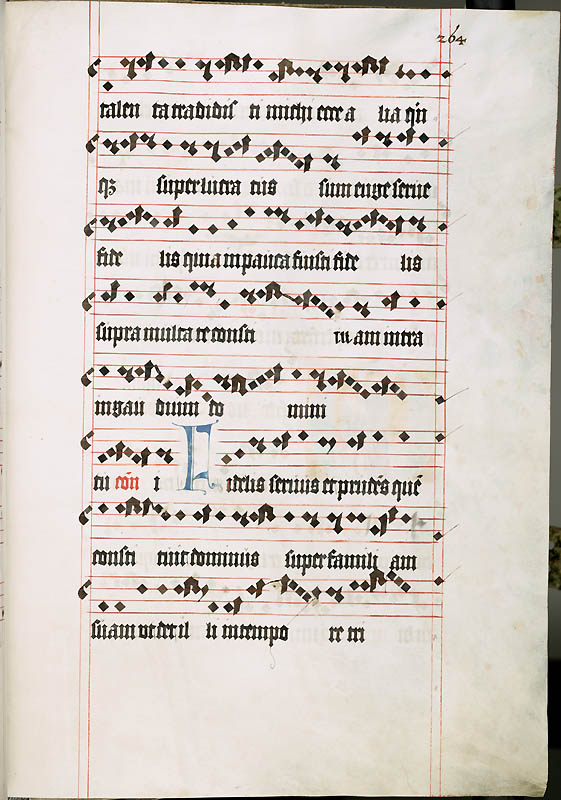 264
talen ta tradidis ti michi ecce a lia q̃n
qȝ super lucra tus sum euge serue
fide lis quia in pauca fuisti fide lis
supra multa te consti tu am intra
in gau dium do mini
tu cōn i Fidelis seruus et prudēs quē
consti tuit dominus super famili am
suam ut det il li in tempo re tri